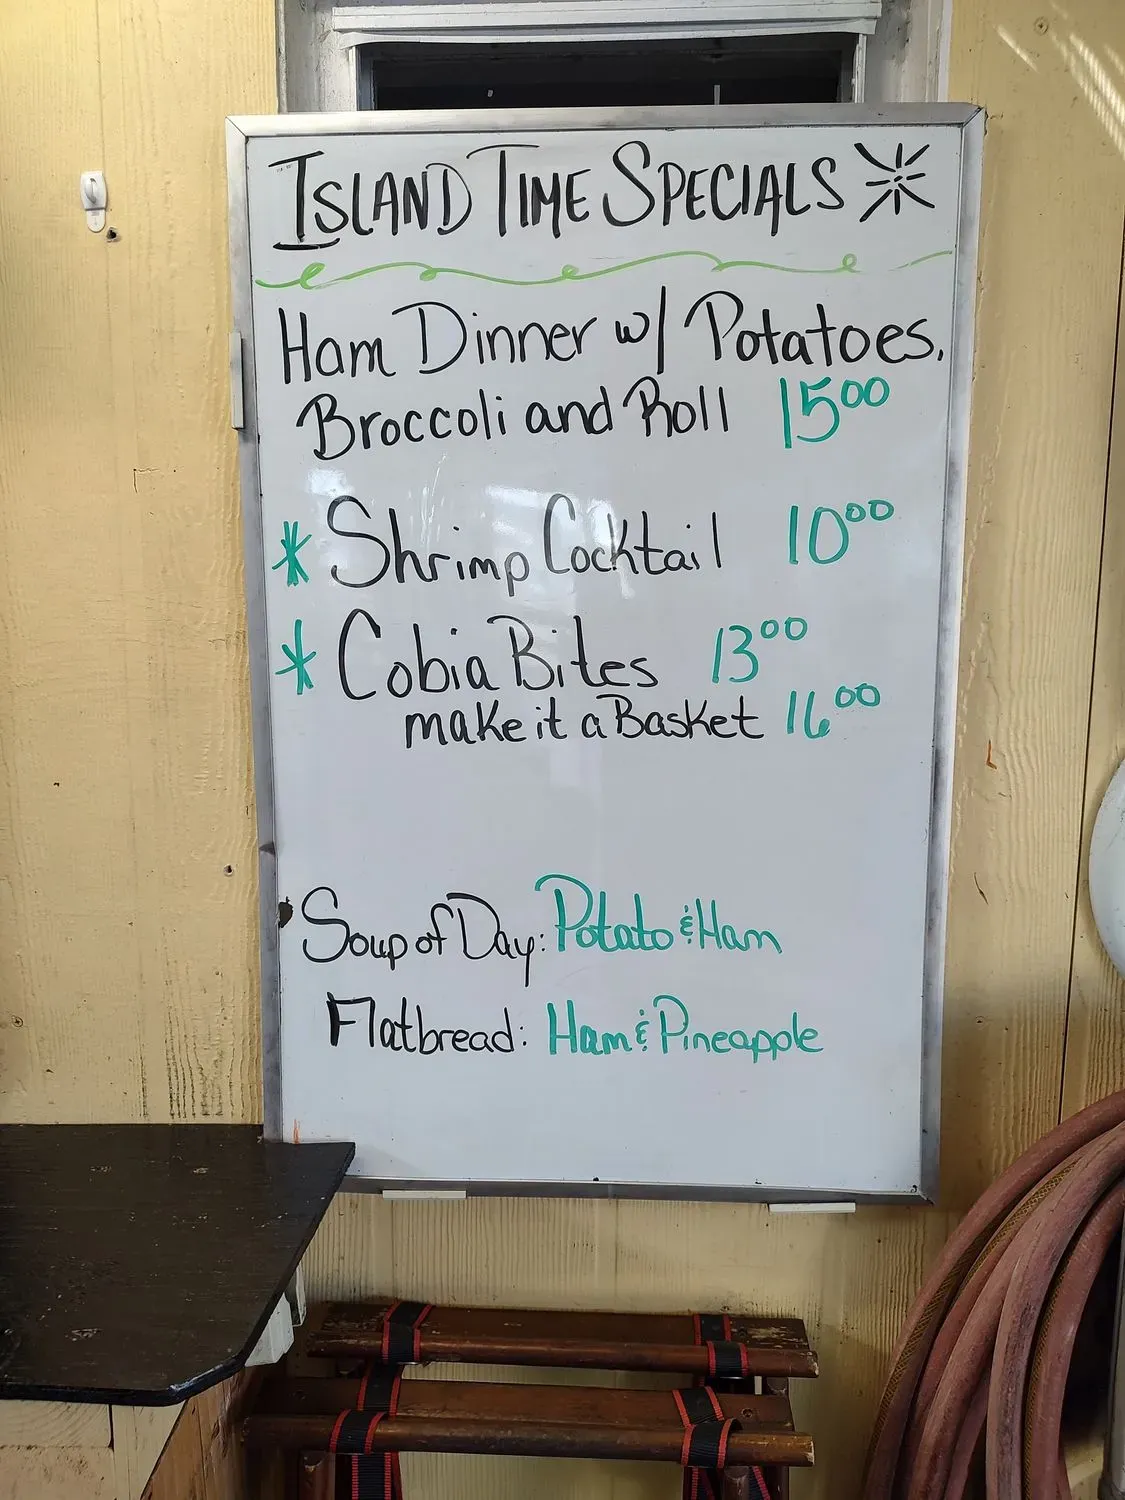 ISLAND TIME SPECIALS
Ham Dinner w/ Potatoes,
Broccoli and Roll 15⁰⁰
* Shrimp Cocktail 10⁰⁰
* Cobia Bites 13⁰⁰
make it a Basket 16⁰⁰
Soup of Day: Potato & Ham
Flatbread: Ham & Pineapple